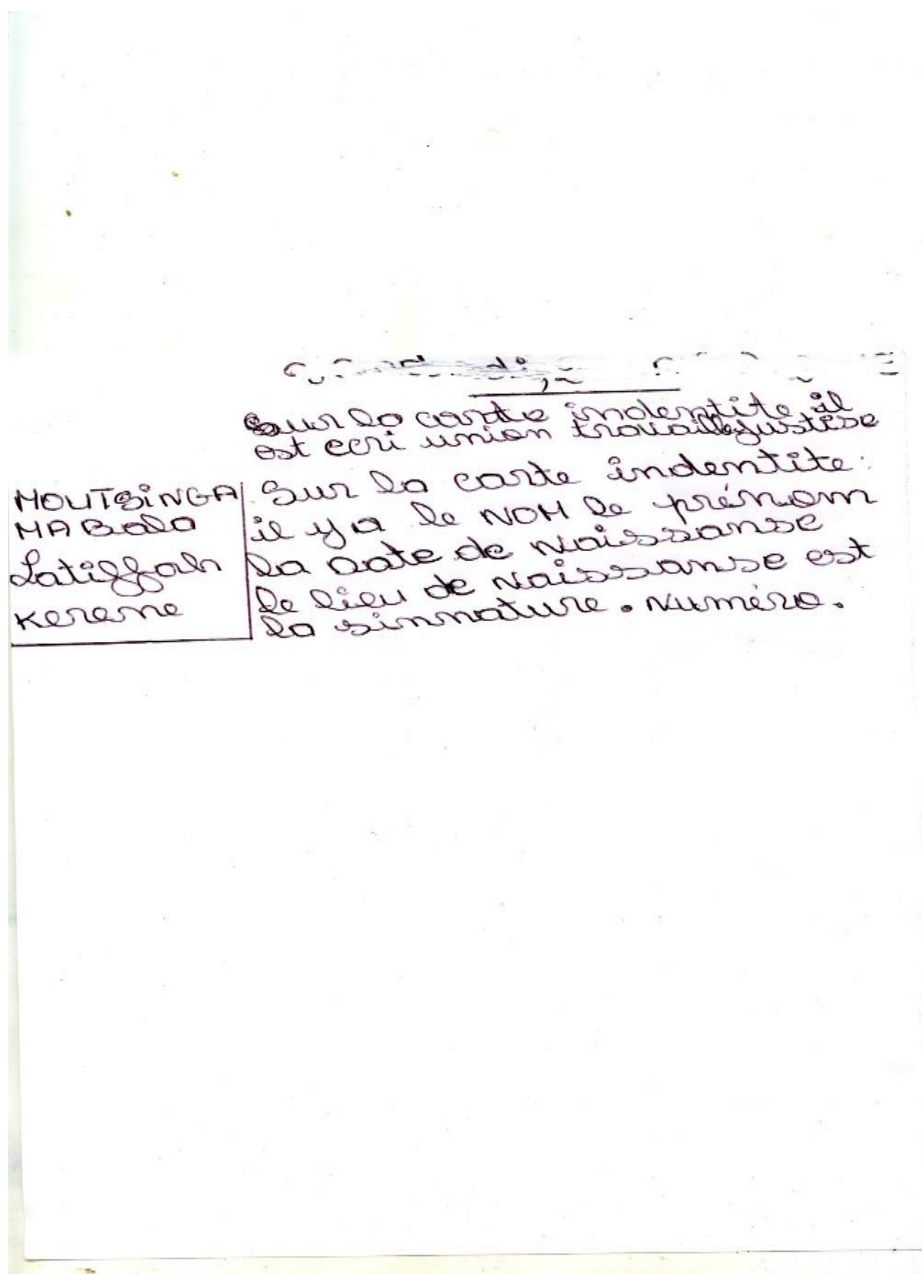 Sur la carte indentite il
est ecri union travailleJustise
MOUTSiNGA
MABala
Latiffah
Kereme
Sur la carte indentite:
il ya le NOM le prénom
la Date de Naissanse
le lieu de Naissanse est
la sinnature. Numéro.